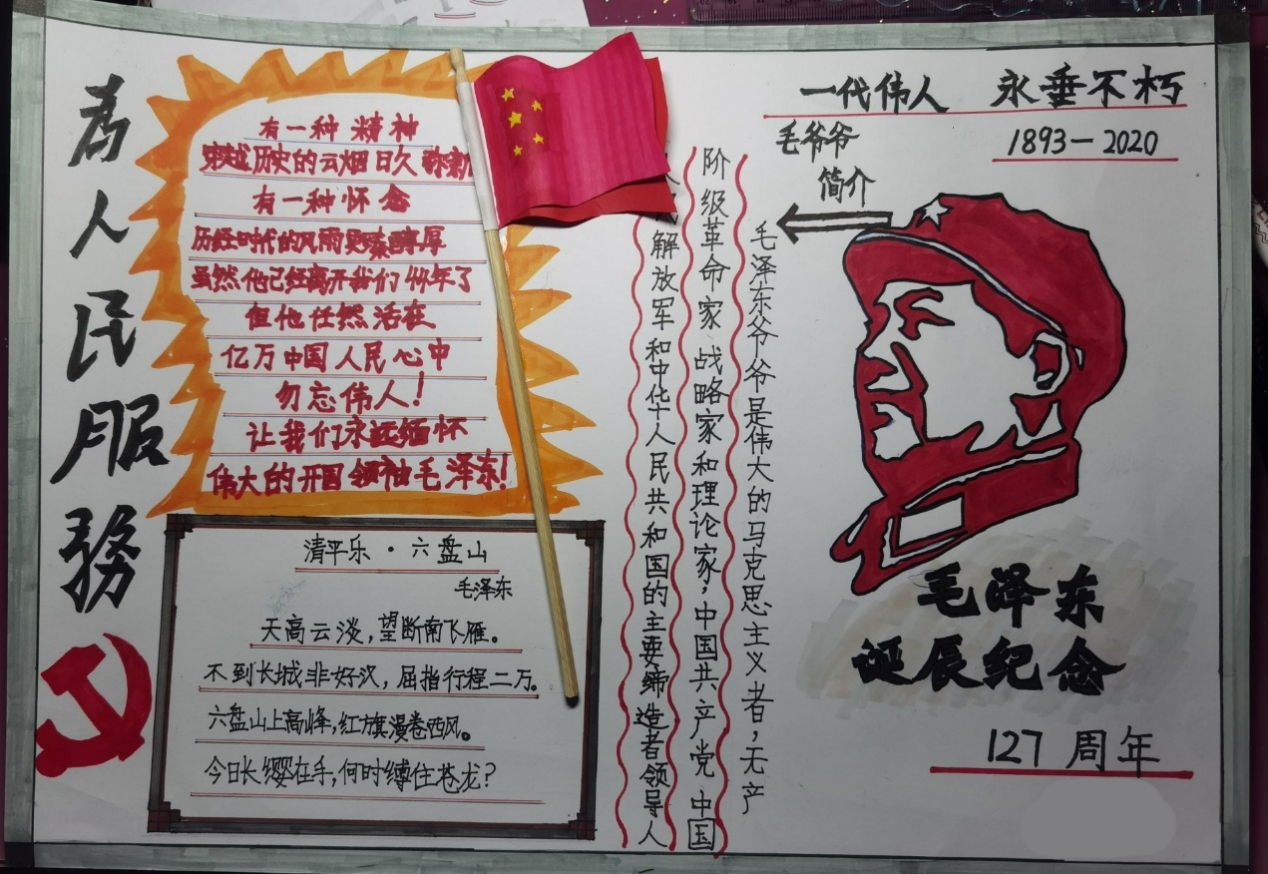 為人民服務
有一种精神
穿越历史的云烟日久弥新
有一种怀念
历经时代的风雨更臻醇厚
虽然他已经离开我们44年了
但他任然活在
亿万中国人民心中
勿忘伟人!
让我们永远缅怀
伟大的开国领袖毛泽东!
清平乐·六盘山
毛泽东
天高云淡,望断南飞雁。
不到长城非好汉,屈指行程二万。
六盘山上高峰,红旗漫卷西风。
今日长缨在手,何时缚住苍龙?
一代伟人 永垂不朽
1893-2020
毛爷爷
简介
毛泽东爷爷是伟大的马克思主义者,无产
阶级革命家 战略家和理论家,中国共产党 中国
解放军和中华人民共和国的主要缔造者领导人
毛泽东
诞辰纪念
127周年